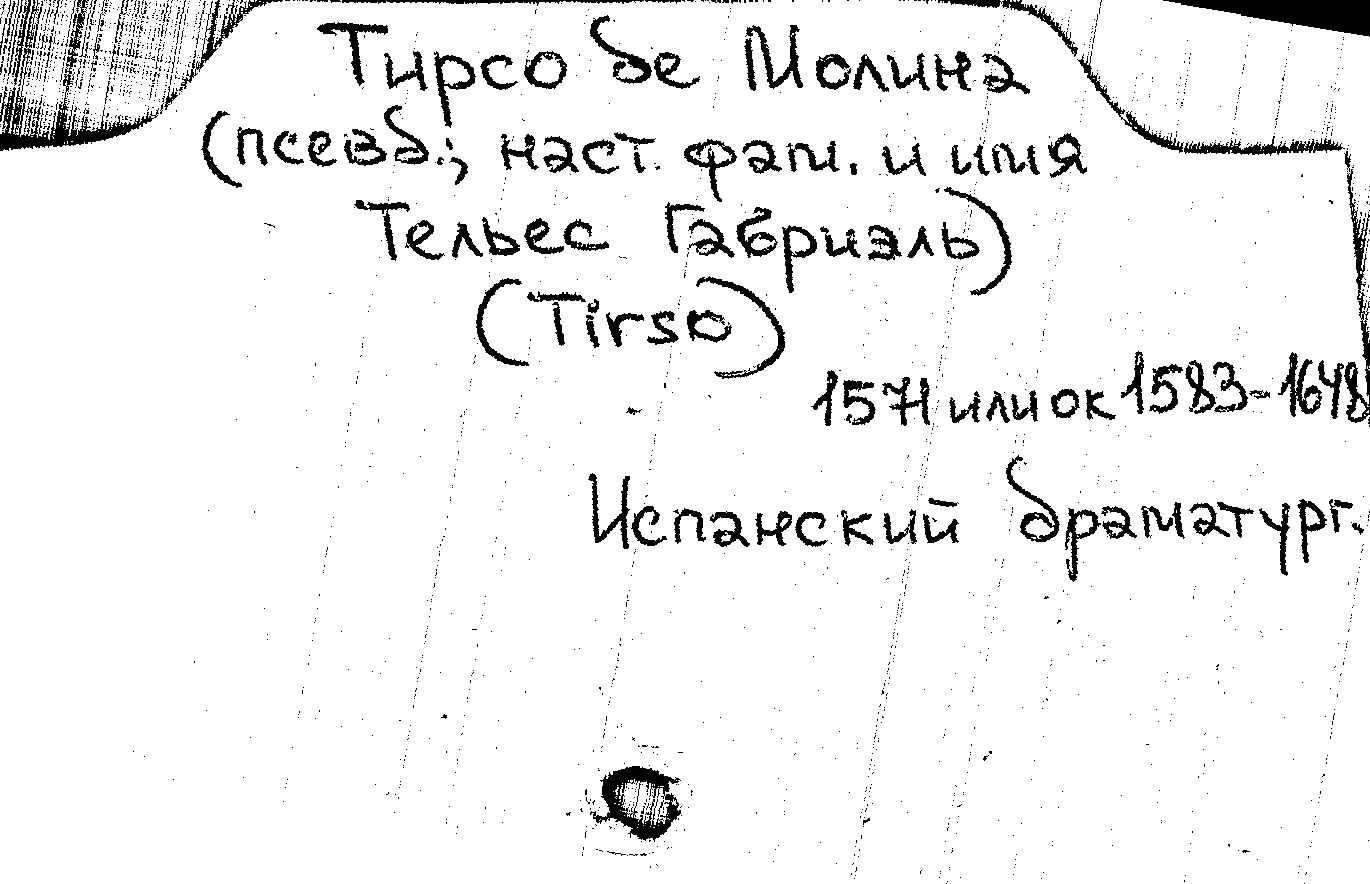 Тирсо де Молина
(псевд.; наст. фам. и имя
Тельес Габриэль)
(Tirso)
1571 или ок 1583-1648
Испанский драматург.